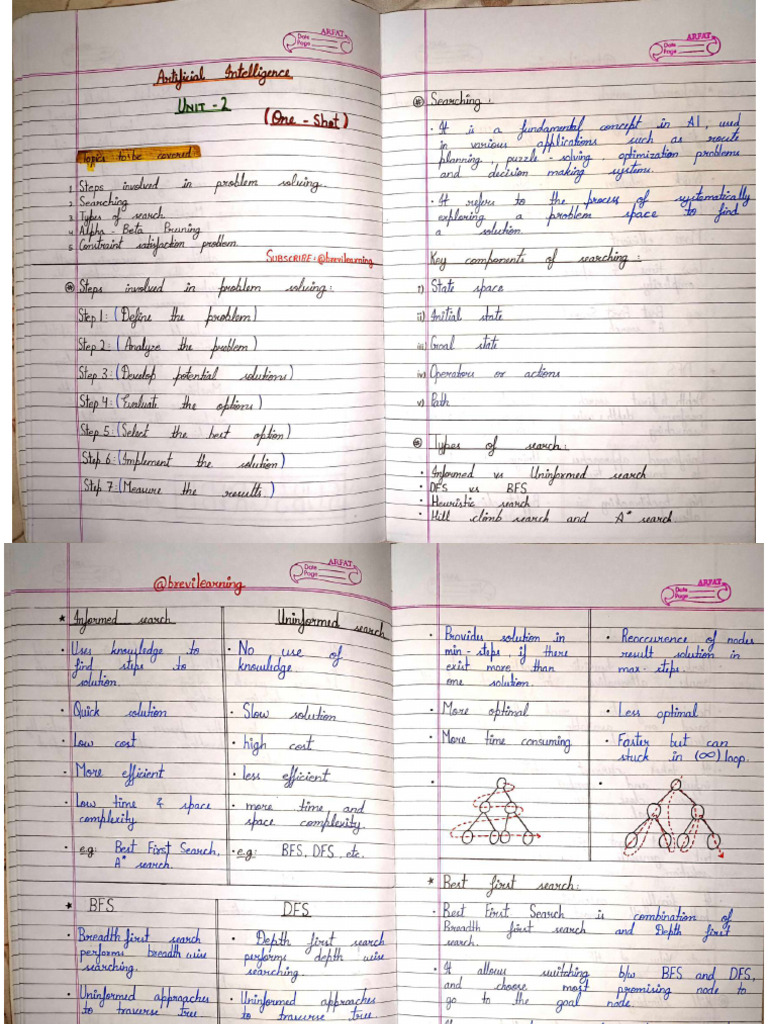 ARFAT
Date
Page
Artificial Intelligence
UNIT - 2
(One - Shot)
Topics to be covered:
1 Steps involved in problem solving.
2 Searching
3 Types of search
4 Alpha - Beta Pruning
5 Constraint satisfaction problem.
SUBSCRIBE: @brevilearning
Steps involved in problem solving:
Step 1: (Define the problem)
Step 2: (Analyze the problem)
Step 3: (Develop potential solutions)
Step 4: (Evaluate the options)
Step 5: (Select the best option)
Step 6: (Implement the solution)
Step 7: (Measure the results.)
ARFAT
Date
Page
Searching:
• It is a fundamental concept in AI, used
in various applications such as route
planning, puzzle-solving, optimization problems
and decision making systems.
• It refers to the process of systematically
exploring a problem space to find
a solution.
Key components of searching:
i) State space
ii) Initial state
iii) Goal state
iv) Operators or actions
v) Path
Types of search:
• Informed vs Uninformed search
• DFS vs BFS
• Heuristic search
• Hill climb search and A* search
@brevilearning
ARFAT
Date
Page
* Informed search
• Uses knowledge to
find steps to
solution.
• Quick solution
• Low cost
• More efficient
• Low time & space
complexity
• e.g: Best First Search,
A* search.
Uninformed search
• No use of
knowledge.
• Slow solution
• high cost
• less efficient
• more time and
space complexity.
• e.g: BFS, DFS, etc.
* BFS
• Breadth first search
performs breadth wise
searching.
• Uninformed approaches
to traverse tree
DFS
• Depth first search
performs depth wise
searching.
• Uninformed approaches
to traverse tree
ARFAT
Date
Page
• Provides solution in
min-steps, if there
exist more than
one solution.
• More optimal
• More time consuming
• Reoccurence of nodes
result solution in
max-steps.
• Less optimal
• Faster but can
stuck in (∞) loop.
* Best first search:
• Best First Search is combination of
Breadth first search and Depth first
search.
• It allows switching b/w BFS and DFS,
and choose most promising node to
go to the goal node.